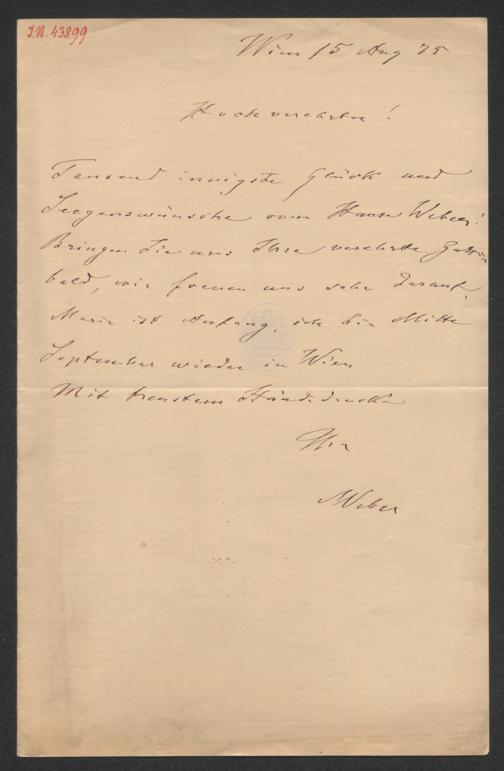 I.N. 43899
Wien 15 Aug 75
Hochverehrter!
Tausend innigste Glück und
Seegenswünsche vom Hause Weber!
Bringen Sie uns Ihre verehrte Gattin
bald, wir freuen uns sehr darauf,
Marie ist Anfang, ich bin Mitte
September wieder in Wien
Mit treustem Händedrucke
Ihr
MWeber